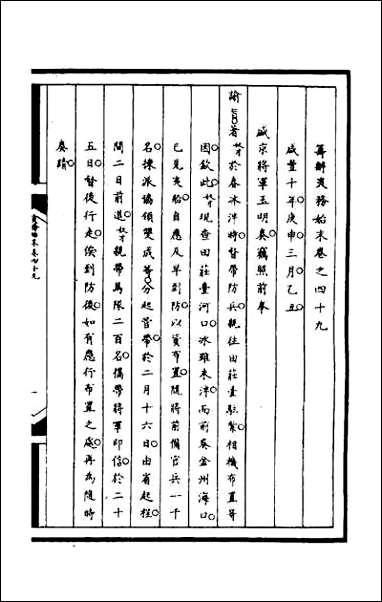 籌辦夷務始末卷之四十九
咸豐十年庚申三月乙丑
盛京將軍玉明奏竊照前奉
諭旨著奴才於春冰泮時督帶防兵親往田莊臺駐紮相機布置等
因欽此奴才現查田莊臺河口冰雖未泮而前奏金州海口
已見夷船自應及早到防以資布置隨將前備官兵一千
名揀派協領雙成等分起管帶於二月十六日由省起程
間二日前進奴才親帶馬隊二百名攜帶將軍印信於二十
五日督後行走俟到防後如有應行布置之處再為隨時
奏請